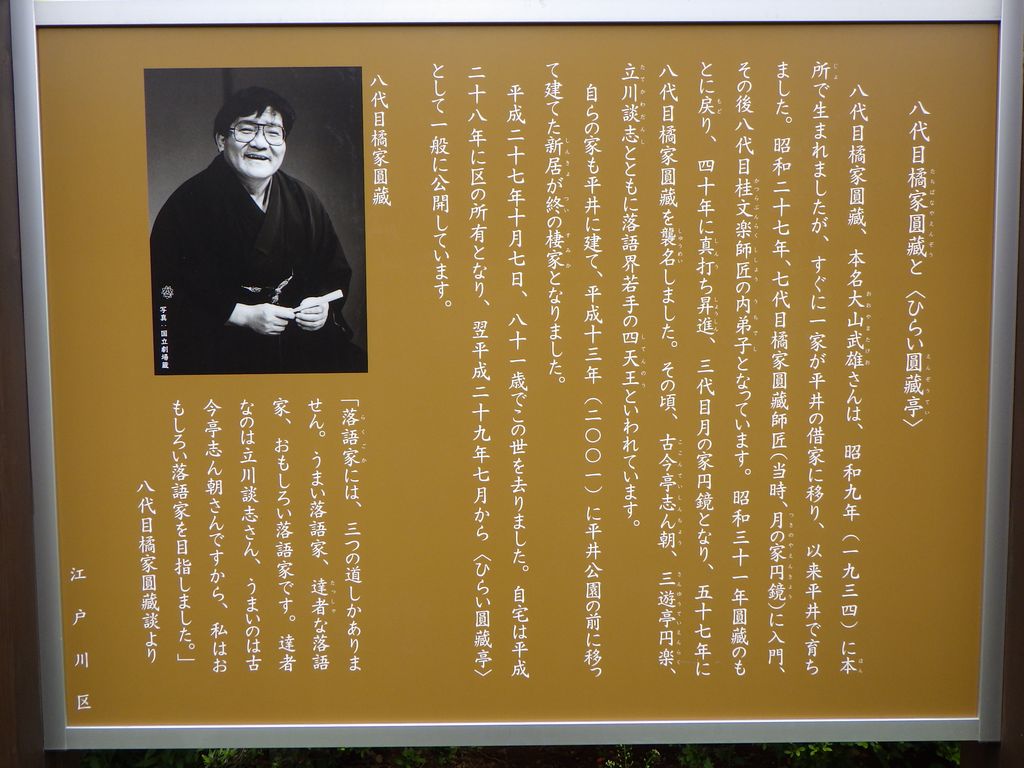 八代目橘家圓藏と〈ひらい圓藏亭〉
八代目橘家圓藏、本名大山武雄さんは、昭和九年（一九三四）に本
所で生まれましたが、すぐに一家が平井の借家に移り、以来平井で育ち
ました。昭和二十七年、七代目橘家圓藏師匠（当時、月の家円鏡）に入門、
その後八代目桂文楽師匠の内弟子となっています。昭和三十一年圓藏のも
とに戻り、四十年に真打ち昇進、三代目月の家円鏡となり、五十七年に
八代目橘家圓藏を襲名しました。その頃、古今亭志ん朝、三遊亭円楽、
立川談志とともに落語界若手の四天王といわれています。
自らの家も平井に建て、平成十三年（二〇〇一）に平井公園の前に移っ
て建てた新居が終の棲家となりました。
平成二十七年十月七日、八十一歳でこの世を去りました。自宅は平成
二十八年に区の所有となり、翌平成二十九年七月から〈ひらい圓藏亭〉
として一般に公開しています。
八代目橘家圓藏
写真：国立劇場蔵
「落語家には、三つの道しかありま
せん。うまい落語家、達者な落語
家、おもしろい落語家です。達者
なのは立川談志さん、うまいのは古
今亭志ん朝さんですから、私はお
もしろい落語家を目指しました。」
八代目橘家圓藏談より
江戸川区